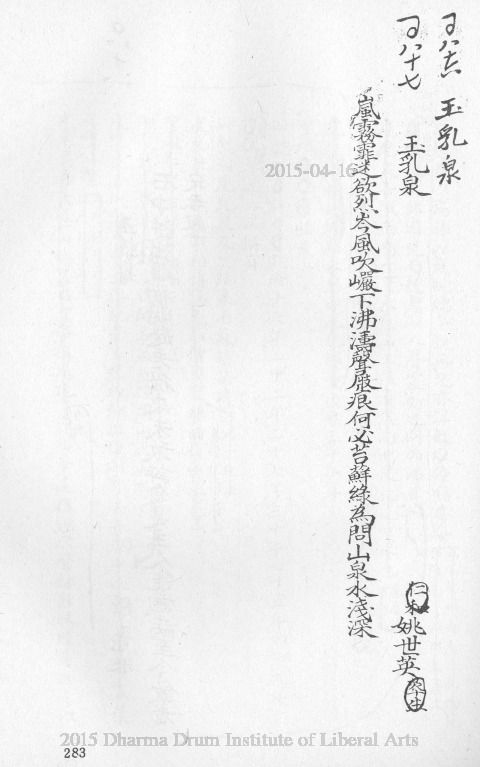 八十六 玉乳泉
八十七 玉乳泉
嵐霧霏迷欲烈岑風吹巖下沸濤聲痕何必苔蘚綠為問山泉水淺深
仁和姚世英
2015-04-16
2015 Dharma Drum Institute of Liberal Arts
283